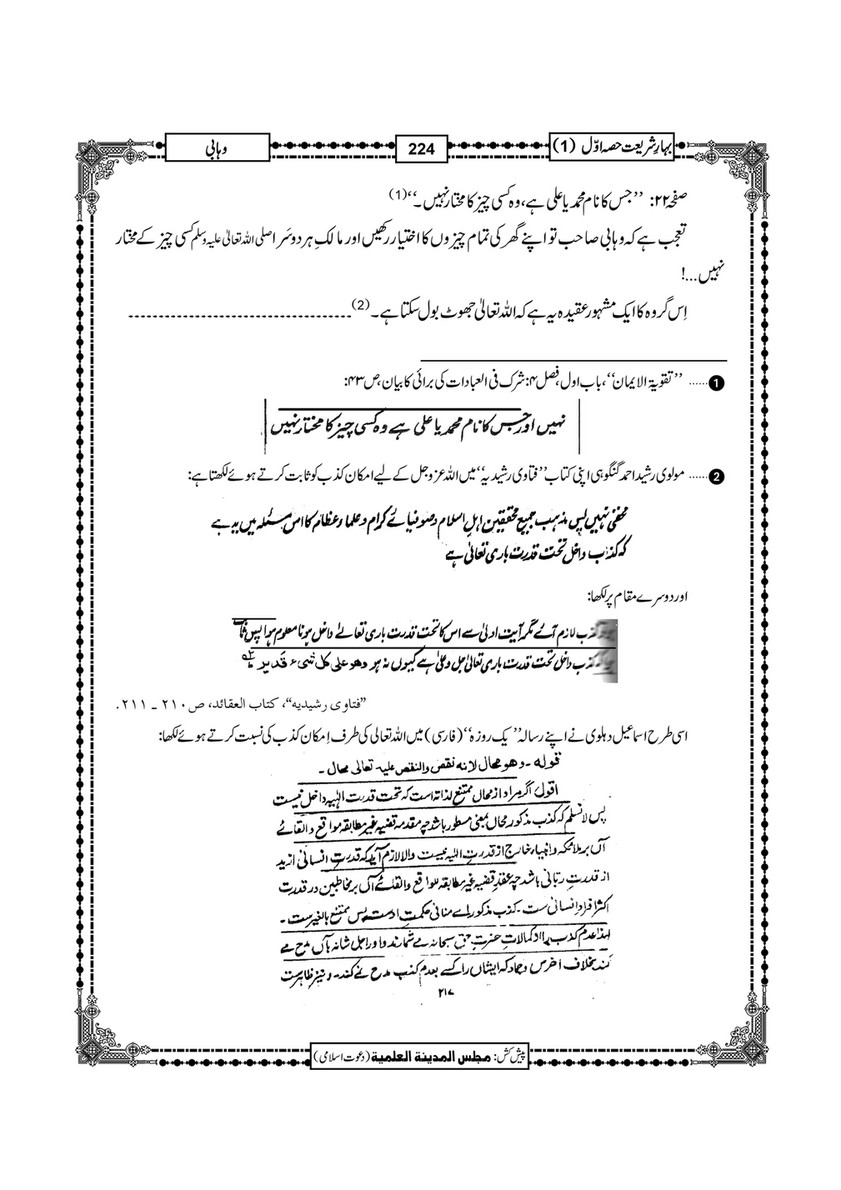 بہارِ شریعت حصہ اوّل (1)
224
وہابی
صفحہ ۲۲: ’’جس کا نام محمد یا علی ہے، وہ کسی چیز کا مختار نہیں۔‘‘(1)
تعجب ہے کہ وہابی صاحب تو اپنے گھر کی تمام چیزوں کا اختیار رکھیں اور مالکِ ہر دوسَرا صلی اللہ تعالیٰ علیہ وسلم کسی چیز کے مختار
نہیں...!
اِس گروہ کا ایک مشہور عقیدہ یہ ہے کہ اللہ تعالیٰ جھوٹ بول سکتا ہے۔(2) -------------------------------------
1 ...... ’’تقویۃ الایمان‘‘، باب اول، فصل ۴: شرک فی العبادات کی برائی کا بیان، ص۴۳:
نہیں اور جس کا نام محمد یا علی ہے وہ کسی چیز کا مختار نہیں
2 ...... مولوی رشید احمد گنگوہی اپنی کتاب ’’فتاوی رشیدیہ‘‘ میں اللہ عزوجل کے لیے امکان کذب کو ثابت کرتے ہوئے لکھتا ہے:
مخفی نہیں پس مذہب جمیع محققین اہل اسلام وصوفیائے کرام وعلماء وعظام کا اس مسئلہ میں یہ ہے
کہ کذب داخل تحت قدرت باری تعالیٰ ہے
اور دوسرے مقام پر لکھا:
کذب لازم آئے مگر آیت اولیٰ سے اس کا تحت قدرت باری تعالےٰ داخل ہونا معلوم ہوا پس
کذب داخل تحت قدرت باری تعالیٰ جل وعلیٰ ہے کیوں نہ ہو وھو علی کل شیء قدیر
’’فتاوی رشیدیہ‘‘، کتاب العقائد، ص۲۱۰ ـ ۲۱۱.
اسی طرح اسماعیل دہلوی نے اپنے رسالہ ’’یک روزہ‘‘ (فارسی) میں اللہ تعالی کی طرف اِمکان کذب کی نسبت کرتے ہوئے لکھا:
قولہ ۔ وھو محال لانہ نقص والنقص علیہ تعالی محال ۔
اقول اگر مراد از محال ممتنع لذاتہ است کہ تحت قدرت الٰہیہ داخل نیست
پس لانسلم کہ کذب مذکور محال بمعنی مسطور باشد چہ مقدمہ قضیہ غیر مطابقہ مواقع والقائے
آں بر ملائکہ وانبیاء خارج از قدرت الٰہیہ نیست والا لازم آید کہ قدرت انسانی ازید
از قدرت ربانی باشد چہ عقد قضیہ غیر مطابقہ للواقع والقائے آں بر مخاطبین در قدرت
اکثر افراد انسانی ست ۔ کذب مذکور اے منافی حکمت اوست پس ممتنع بالغیر ست ۔
لہذا عدم کذب را از کمالات حضرت حق سبحانہ مے شمارند و اورا جل شانہ بآں مدح مے
کنند بخلاف اخرس وجماد کہ ایشاں را کسے بعدم کذب مدح نمے کند ۔ ونیز ظاہرست
۲۱۷
پیش کش: مجلس المدینۃ العلمیۃ (دعوت اسلامی)